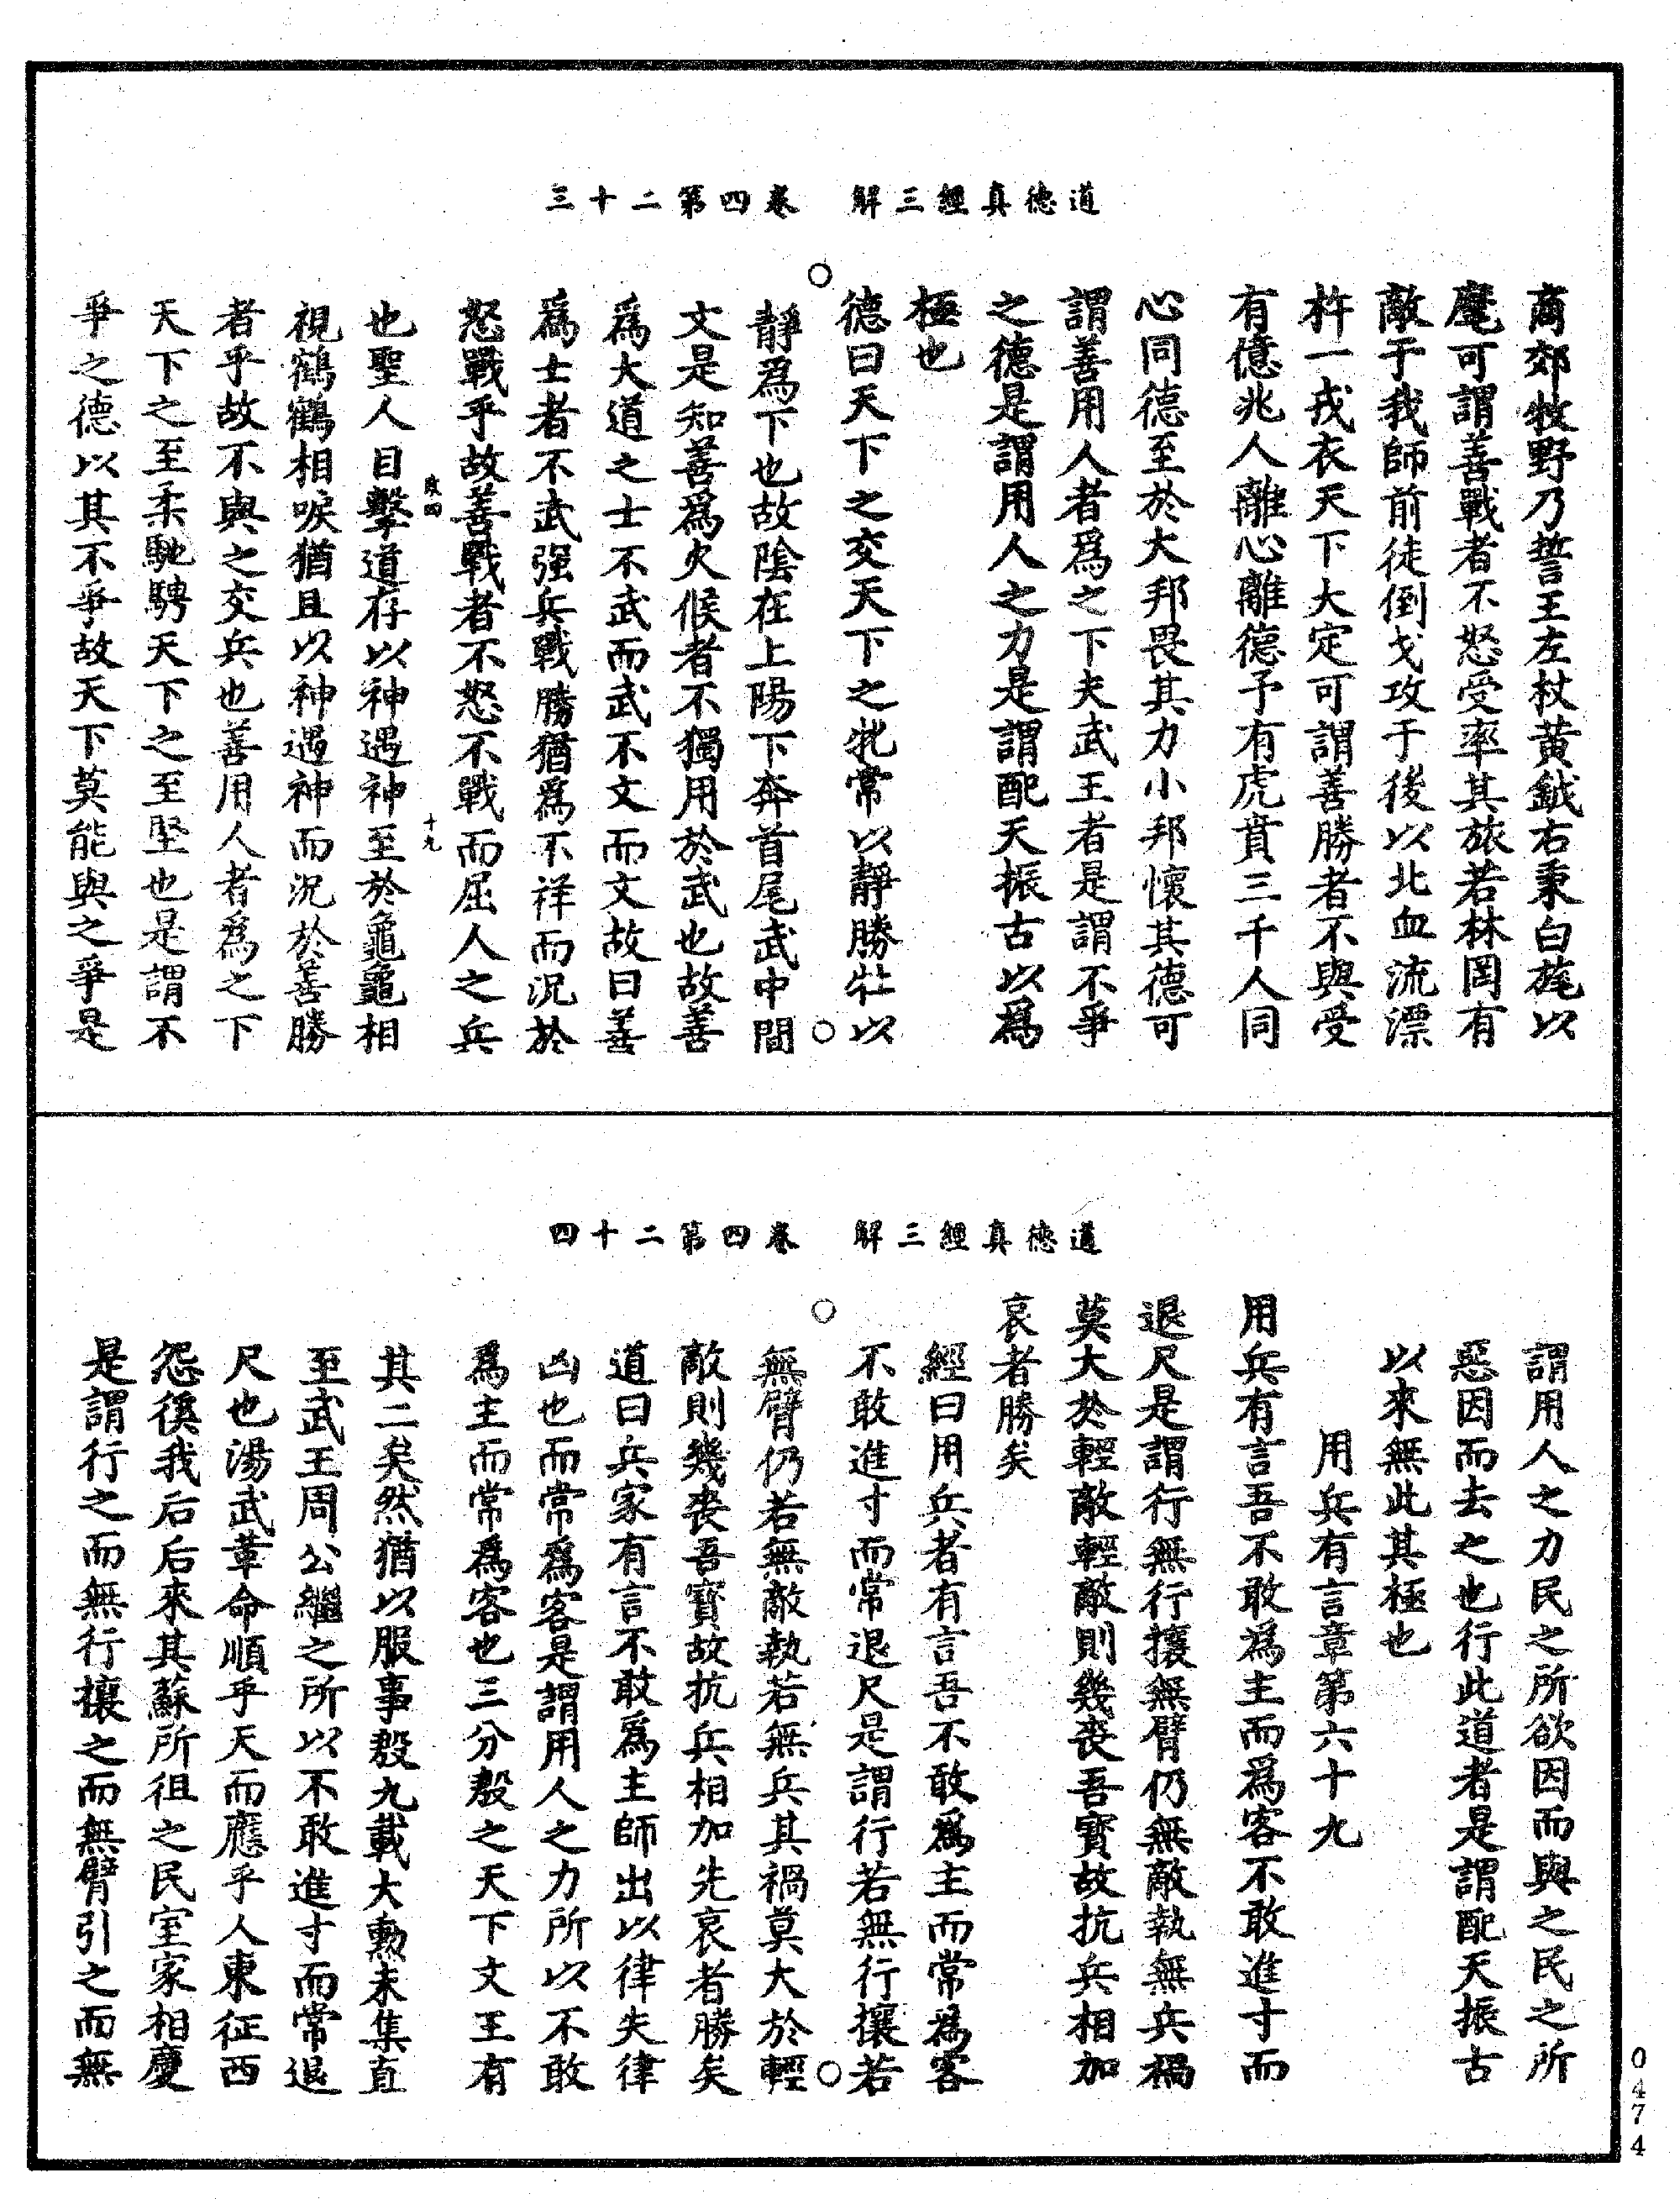 道德真經三解　卷四第二十三
商郊牧野乃誓王左杖黃鉞右秉白旄以
麾可謂善戰者不怒受率其旅若林罔有
敵于我師前徒倒戈攻于後以北血流漂
杵一戎衣天下大定可謂善勝者不與受
有億兆人離心離德予有虎賁三千人同
心同德至於大邦畏其力小邦懷其德可
謂善用人者爲之下夫武王者是謂不爭
之德是謂用人之力是謂配天振古以爲
極也
德曰天下之交天下之牝常以靜勝牡以
靜爲下也故陰在上陽下奔首尾武中間
文是知善爲火候者不獨用於武也故善
爲大道之士不武而武不文而文故曰善
爲士者不武强兵戰勝猶爲不祥而況於
怒戰乎故善戰者不怒不戰而屈人之兵
也聖人目擊道存以神遇神至於龜龜相
視鶴鶴相唳猶且以神遇神而況於善勝
者乎故不與之交兵也善用人者爲之下
天下之至柔馳騁天下之至堅也是謂不
爭之德以其不爭故天下莫能與之爭是
十九
道德真經三解　卷四第二十四
謂用人之力民之所欲因而與之民之所
惡因而去之也行此道者是謂配天振古
以來無此其極也
用兵有言章第六十九
用兵有言吾不敢爲主而爲客不敢進寸而
退尺是謂行無行攘無臂仍無敵執無兵禍
莫大於輕敵輕敵則幾喪吾寶故抗兵相加
哀者勝矣
經曰用兵者有言吾不敢爲主而常爲客
不敢進寸而常退尺是謂行若無行攘若
無臂仍若無敵執若無兵其禍莫大於輕
敵則幾喪吾寶故抗兵相加先哀者勝矣
道曰兵家有言不敢爲主師出以律失律
凶也而常爲客是謂用人之力所以不敢
爲主而常爲客也三分殷之天下文王有
其二矣然猶以服事殷九載大勳未集直
至武王周公繼之所以不敢進寸而常退
尺也湯武革命順乎天而應乎人東征西
怨徯我后后來其蘇所徂之民室家相慶
是謂行之而無行攘之而無臂引之而無
0474